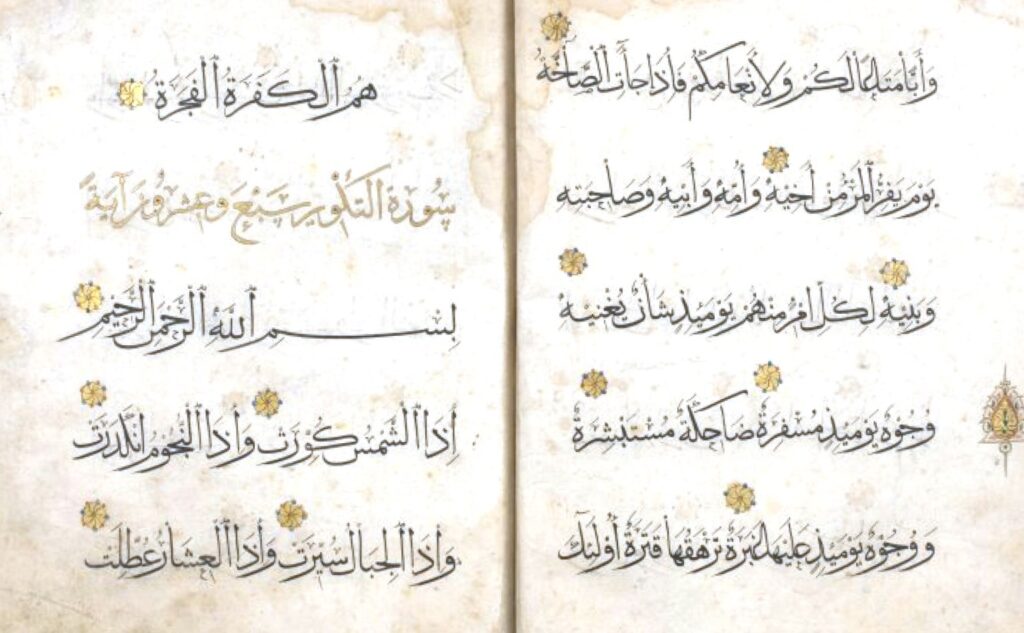 وَأَبًّا مَتَاعًا لَكُمْ وَلِأَنْعَامِكُمْ فَإِذَا جَاءَتِ الصَّاخَّةُ
يَوْمَ يَفِرُّ الْمَرْءُ مِنْ أَخِيهِ وَأُمِّهِ وَأَبِيهِ وَصَاحِبَتِهِ
وَبَنِيهِ لِكُلِّ امْرِئٍ مِنْهُمْ يَوْمَئِذٍ شَأْنٌ يُغْنِيهِ
وُجُوهٌ يَوْمَئِذٍ مُسْفِرَةٌ ضَاحِكَةٌ مُسْتَبْشِرَةٌ
وَوُجُوهٌ يَوْمَئِذٍ عَلَيْهَا غَبَرَةٌ تَرْهَقُهَا قَتَرَةٌ أُولَئِكَ
هُمُ الْكَفَرَةُ الْفَجَرَةُ
سُورَةُ التَّكْوِيرِ سَبْعَ وَعِشْرُونَ آيَةً
بِسْمِ اللَّهِ الرَّحْمَنِ الرَّحِيمِ
إِذَا الشَّمْسُ كُوِّرَتْ وَإِذَا النُّجُومُ انْكَدَرَتْ
وَإِذَا الْجِبَالُ سُيِّرَتْ وَإِذَا الْعِشَارُ عُطِّلَتْ